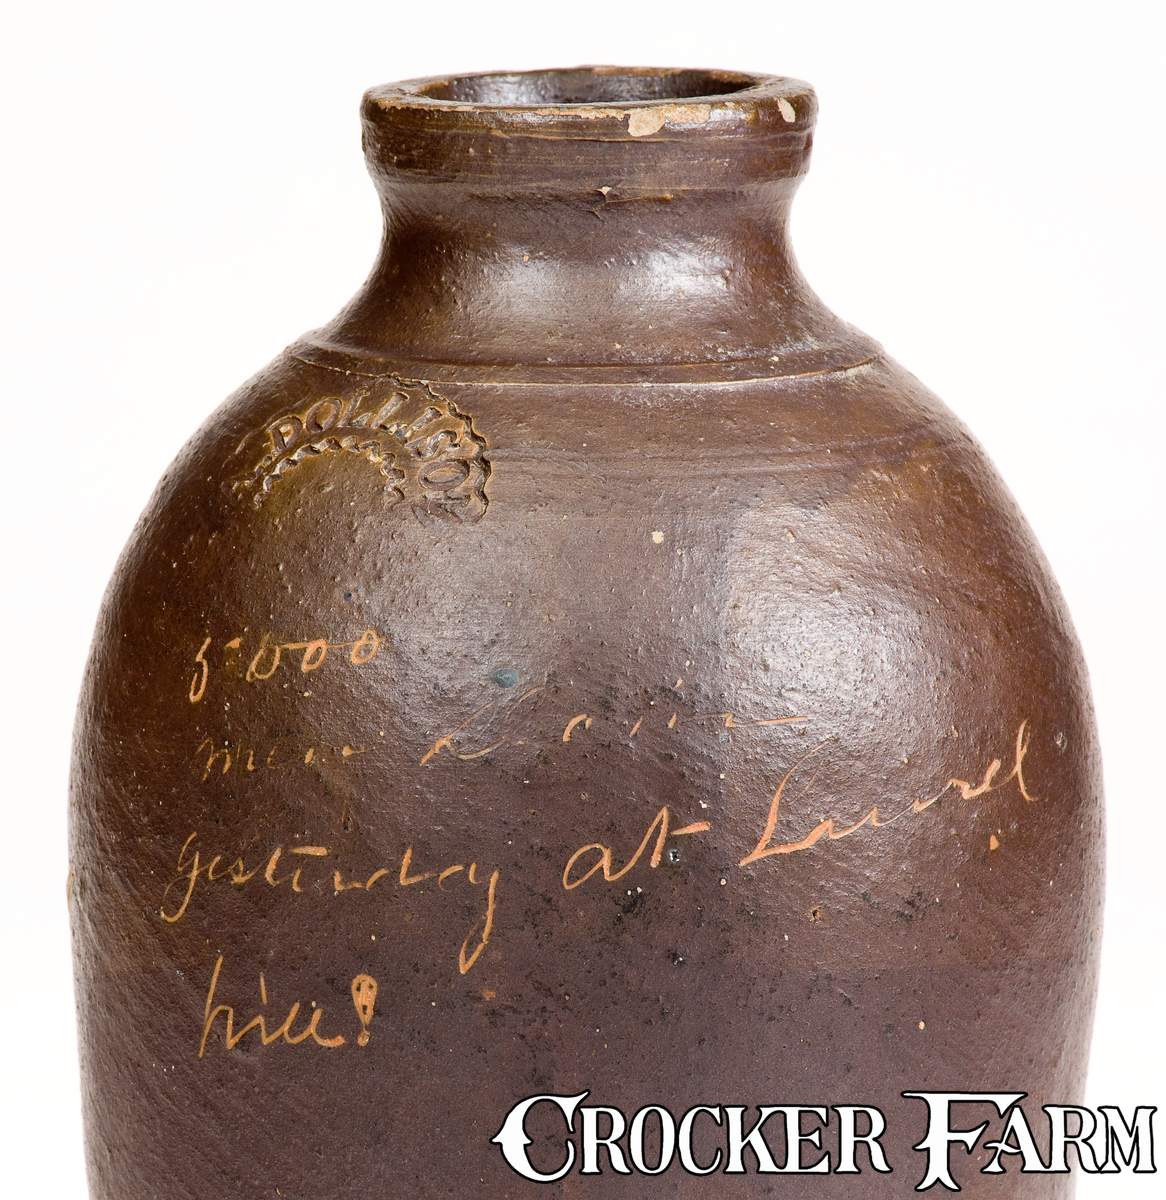 DOLLISON
5000
men
yesterday at Laurel
hill!
CROCKER FARM